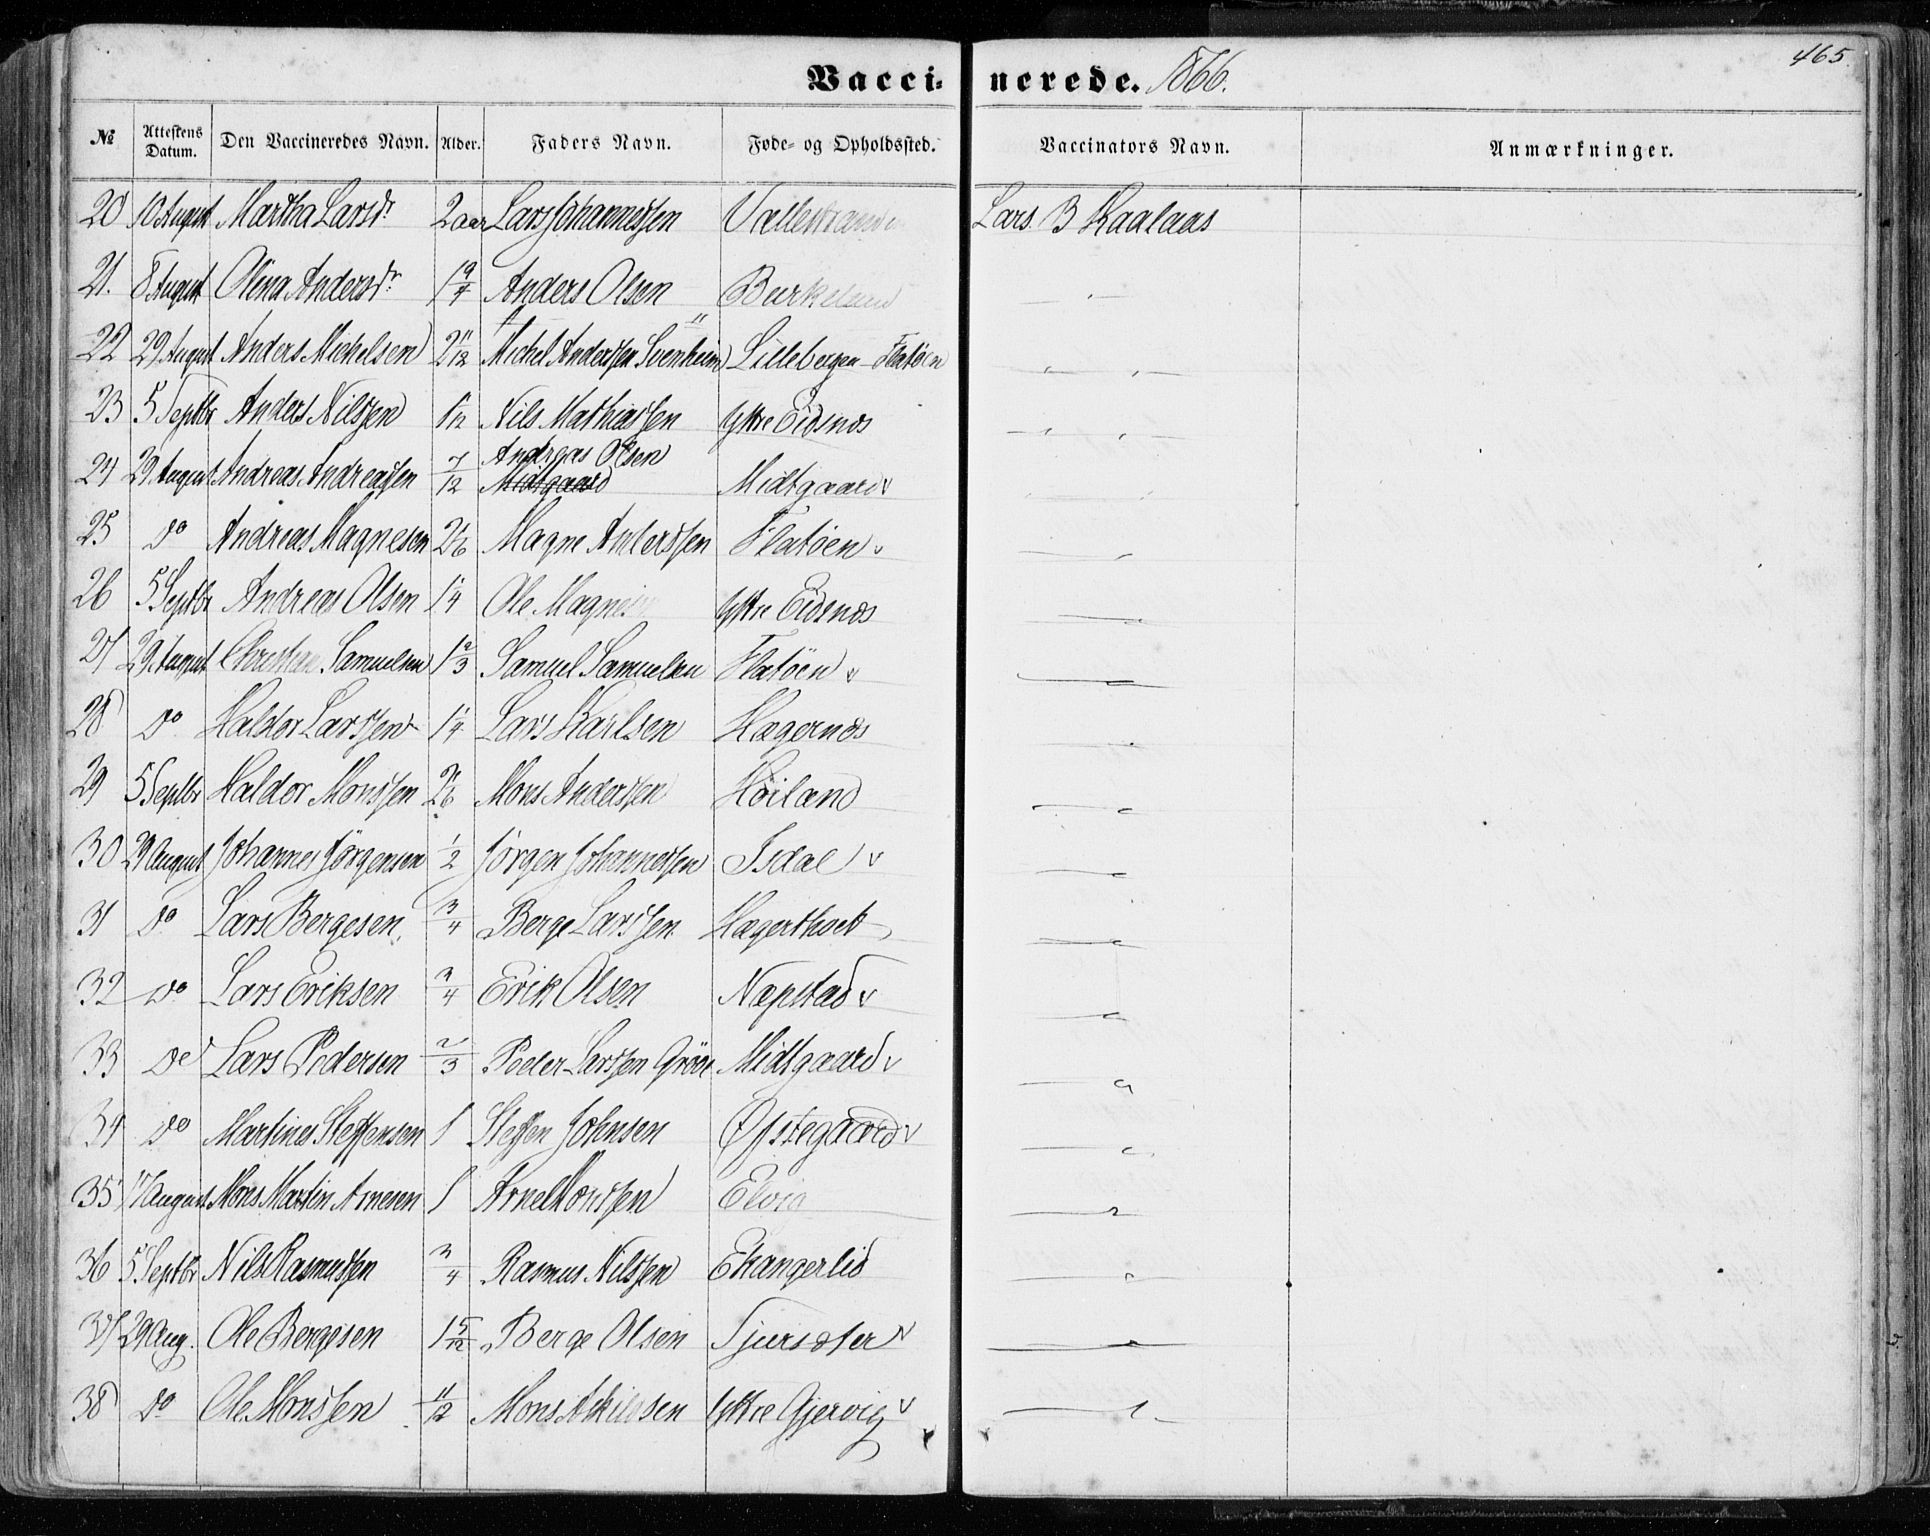 465.
Vaccinerede. 1866.
№ Attestens Datum. Den Vaccineredes Navn. Alder. Faders Navn. Føde- og Opholdssted. Vaccinators Navn. Anmærkninger.
20 10 August Martha Larsdr 2 aar Lars Johannessen Vallestrand Lars B Kaalaas
21. 8 August Olina Andersdr 1 Anders Olsen Burkeland
22 29 August Anders Mickelsen 2 11/12 Mickel Anderssen Svenheim Lillebergen Flatöen
23 5 Septbr Anders Nilssen Nils Mathiassen Yttre Eidsnes
24 29 August Andreas Andreassen 7/12 Andreas Olsen Midtgaard Midtgaard
25 do Andreas Magnesen 2 1/6 Magne Anderssen Flatöen
26 5 Septbr Andreas Olsen 1 1/4 Ole Magnesen Yttre Eidsnes
27 29 August Christian Samuelsen 1 2/3 Samuel Samuelsen Flatöen
28 do Haldor Larssen 1 1/4 Lars Karlsen Hagernes
29 5 Septbr Haldor Monssen 2 1/6 Mons Anderssen Höiland
30 29 August Johannes Jörgensen 1/2 Jörgen Johannessen Isdal
31 do Lars Bergesen 3/4 Berge Larssen Hagerthvet
32 do Lars Eriksen 3/4 Erik Olsen Næpstad
33 do Lars Pedersen 2/3 Peder Larssen Midtgaard
34 do Martines Steffensen 1 Steffen Johnsen Øfstegaard
35 17 August Mons Martin Arnesen 1 Arne Monssen Elvig
36 5 Septbr Nils Rasmussen 3/4 Rasmus Nilssen Ekangerlid
37 29 Aug. Ole Bergesen 1 5/12 Berge Olsen
38 do Ole Monssen 11/12 Mons Yttre Gjervig